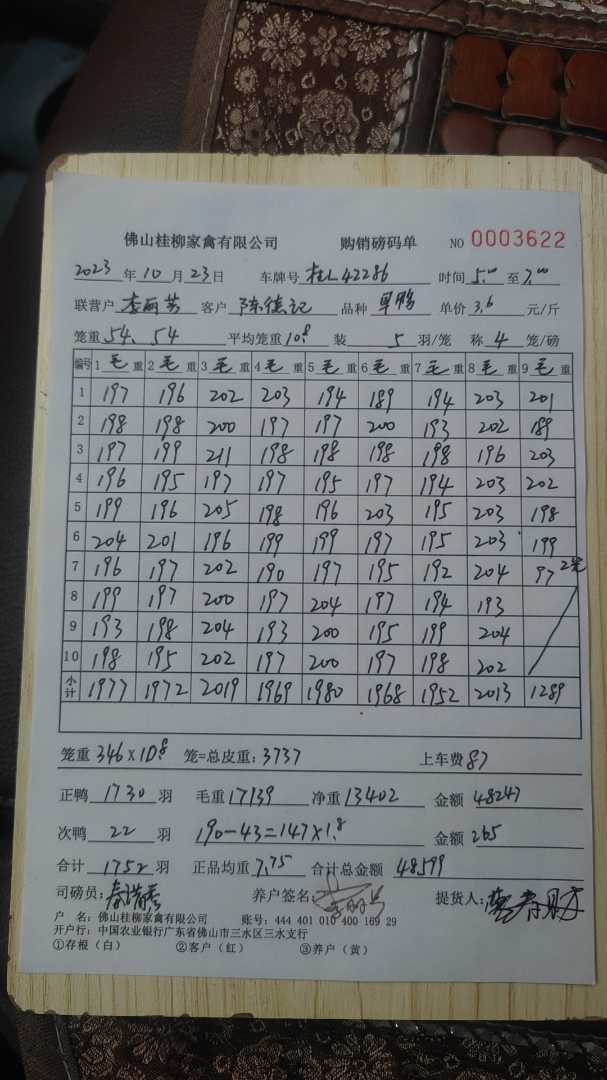 佛山桂柳家禽有限公司 购销磅码单 NO 0003622
2023年10月23日 车牌号 桂L42286 时间5.00至7.00
联营户 李丽芳 客户 陈德记 品种 单鸭 单价 3.6 元/斤
笼重 54、54 平均笼重10.8 装 5 羽/笼 称 4 笼/磅
编号 1毛重 2毛重 3毛重 4毛重 5毛重 6毛重 7毛重 8毛重 9毛重
1 197 196 202 203 194 189 194 203 201
2 198 198 200 197 197 200 193 202 189
3 197 199 211 198 198 198 198 196 203
4 196 195 197 197 195 197 194 203 202
5 199 196 205 198 196 203 195 203 198
6 204 201 196 199 199 197 195 203 199
7 196 197 202 190 197 195 192 204 97 2笼
8 199 197 200 197 204 197 194 193
9 193 198 204 193 200 195 199 204
10 198 195 202 197 200 197 198 202
小计 1977 1972 2019 1969 1980 1968 1952 2013 1289
笼重 346×10.8 笼=总皮重:3737 上车费 87
正鸭 1730 羽 毛重 17139 净重 13402 金额 48247
次鸭 22 羽 190-43=147×1.8 金额 265
合计 1752 羽 正品均重 7.75 合计总金额 48599
司磅员: 养户签名: 提货人:
户 名:佛山桂柳家禽有限公司 账号:444 401 010 400 169 29
开户行:中国农业银行广东省佛山市三水区三水支行
①存根(白) ②客户(红) ③养户(黄)